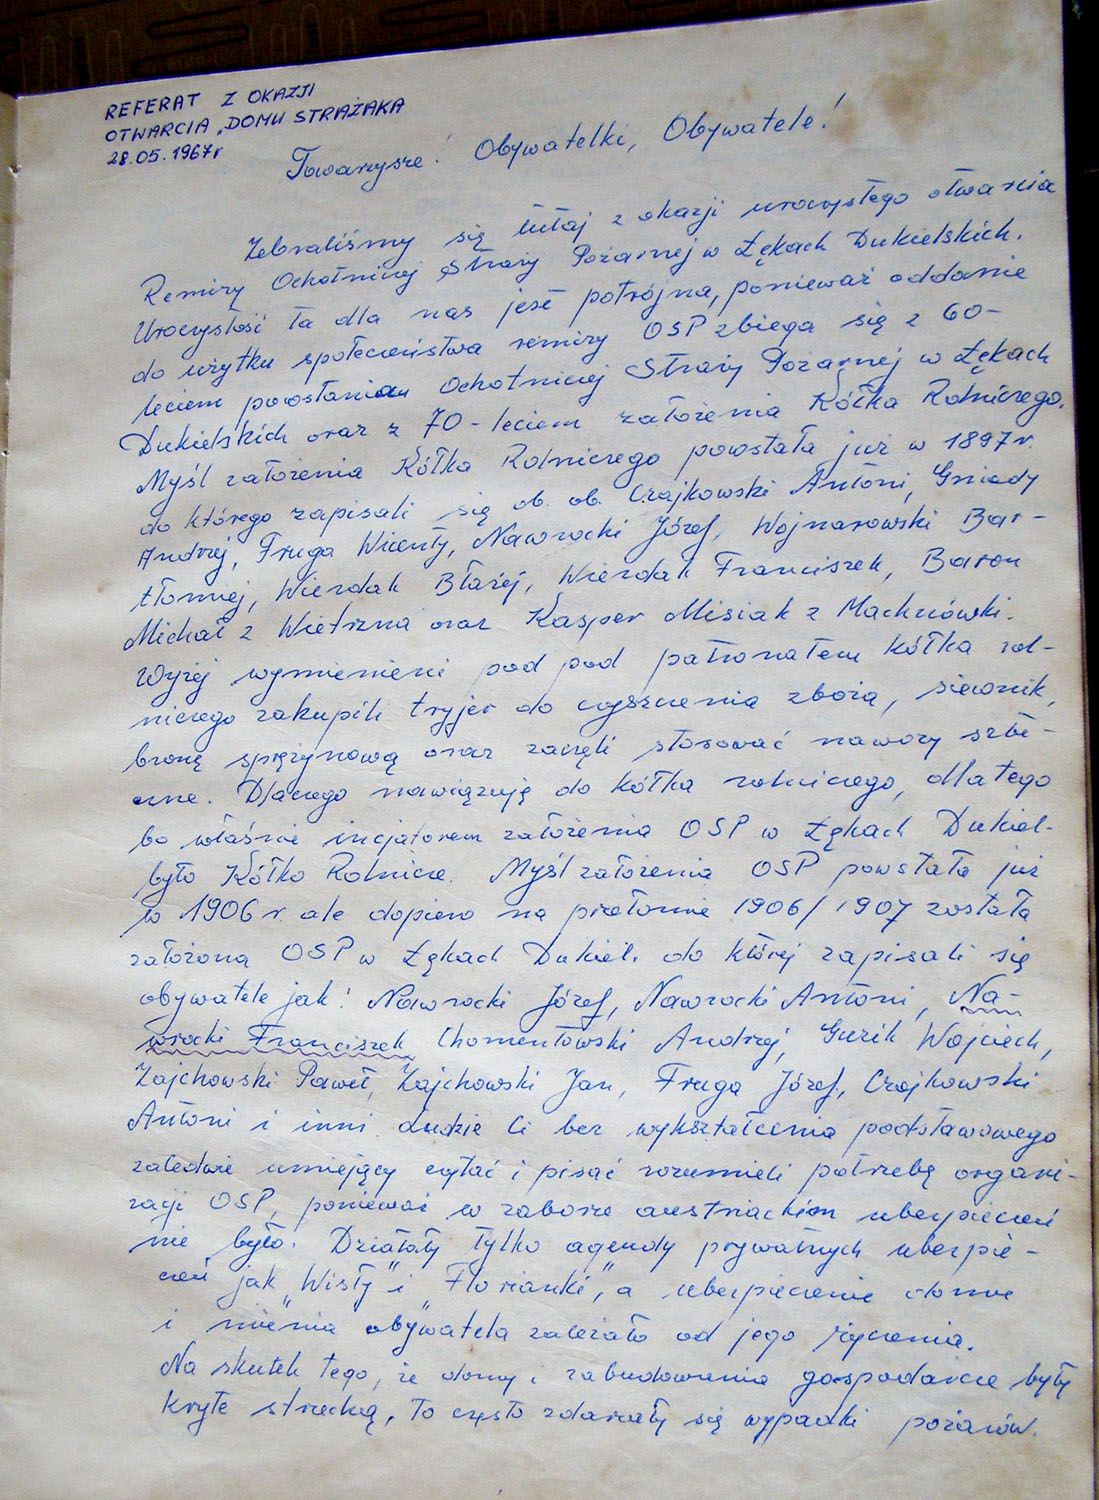 REFERAT Z OKAZJI
OTWARCIA „DOMU STRAŻAKA
28.05.1967r
Towarzysze! Obywatelki, Obywatele!
Zebraliśmy się tutaj z okazji uroczystego otwarcia
Remizy Ochotniczej Straży Pożarnej w Łękach Dukielskich.
Uroczystość ta dla nas jest potrójna, ponieważ oddanie
do użytku społeczeństwa remizy OSP zbiega się z 60-
leciem powstania Ochotniczej Straży Pożarnej w Łękach
Dukielskich oraz z 70-leciem założenia Kółka Rolniczego.
Myśl założenia Kółka Rolniczego powstała już w 1897r
do którego zapisali się ob. ob. Czajkowski Antoni, Gniady
Andrzej, Fruga Wicenty, Nawrocki Józef, Wojnarowski Bar-
tłomiej, Wierdak Błażej, Wierdak Franciszek, Baron
Michał z Wietrzna oraz Kasper Misiak z Machnówki.
Wyżej wymienieni pod pod patronatem kółka rol-
niczego zakupili tryjer do czyszczenia zboża, siewnik,
bronę sprężynową oraz zaczęli stosować nawozy sztu-
czne. Dlaczego nawiązuję do kółka rolniczego, dlatego
bo właśnie incjatorem założenia OSP w Łękach Dukiel.
było Kółko Rolnicze. Myśl założenia OSP powstała już
w 1906 r. ale dopiero na przełomie 1906/1907 została
założona OSP w Łękach Dukiel. do której zapisali się
obywatele jak: Nawrocki Józef, Nawrocki Antoni, Na-
wrocki Franciszek Chomentowski Andrzej, Guzik Wojciech,
Zajchowski Paweł, Zajchowski Jan, Fruga Józef, Czajkowski
Antoni i inni. Ludzie ci bez wykształcenia podstawowego
zaledwie umiejący czytać i pisać rozumieli potrzebę organi-
zacji OSP, ponieważ w zaborze austriackim ubezpieczeń
nie było. Działały tylko agendy prywatnych ubezpie-
czeń jak „Wisły" i „Florianki", a ubezpieczenie domu
i mienia obywatela zależało od jego życzenia.
Na skutek tego, że domy i zabudowania gospodarcze były
kryte strzechą, to często zdarzały się wypadki pożarów.